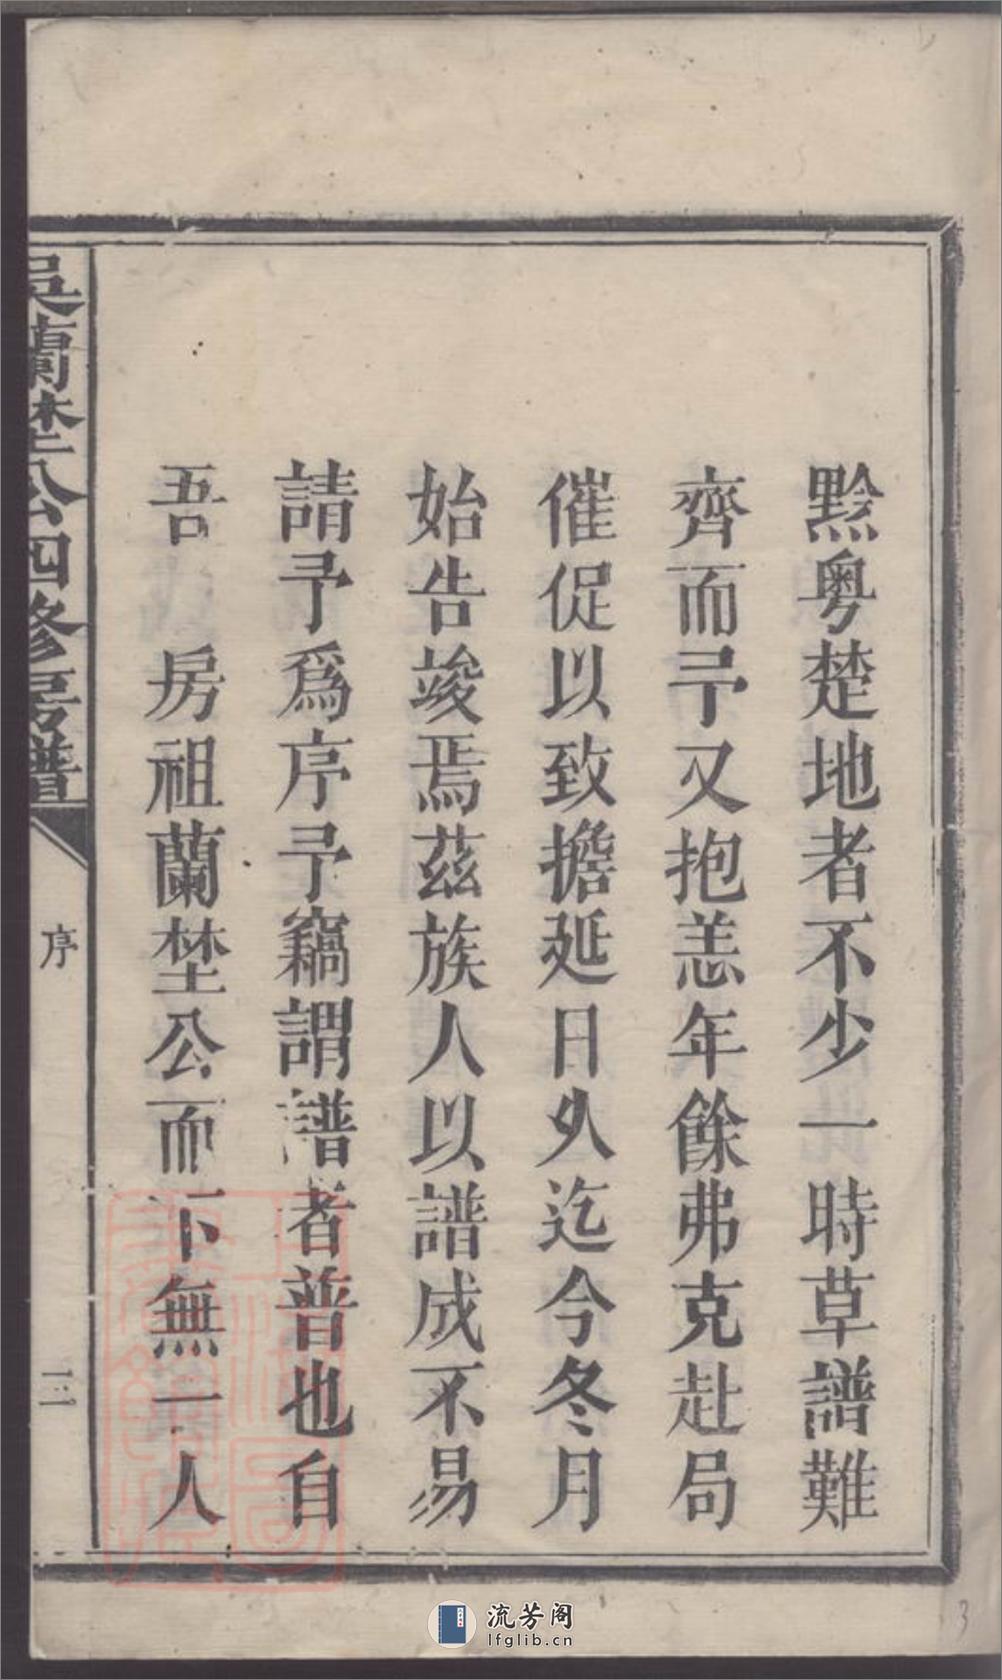 黔粤楚地者不少一時草譜難
齊而予又抱恙年餘弗克赴局
催促以致擔延日久迄今冬月
始告竣焉茲族人以譜成不易
請予爲序予竊謂譜者普也自
吾 房祖蘭埜公而下無一人
吳蘭埜公四修房譜
序
三
流芳阁
lfglib.cn
3